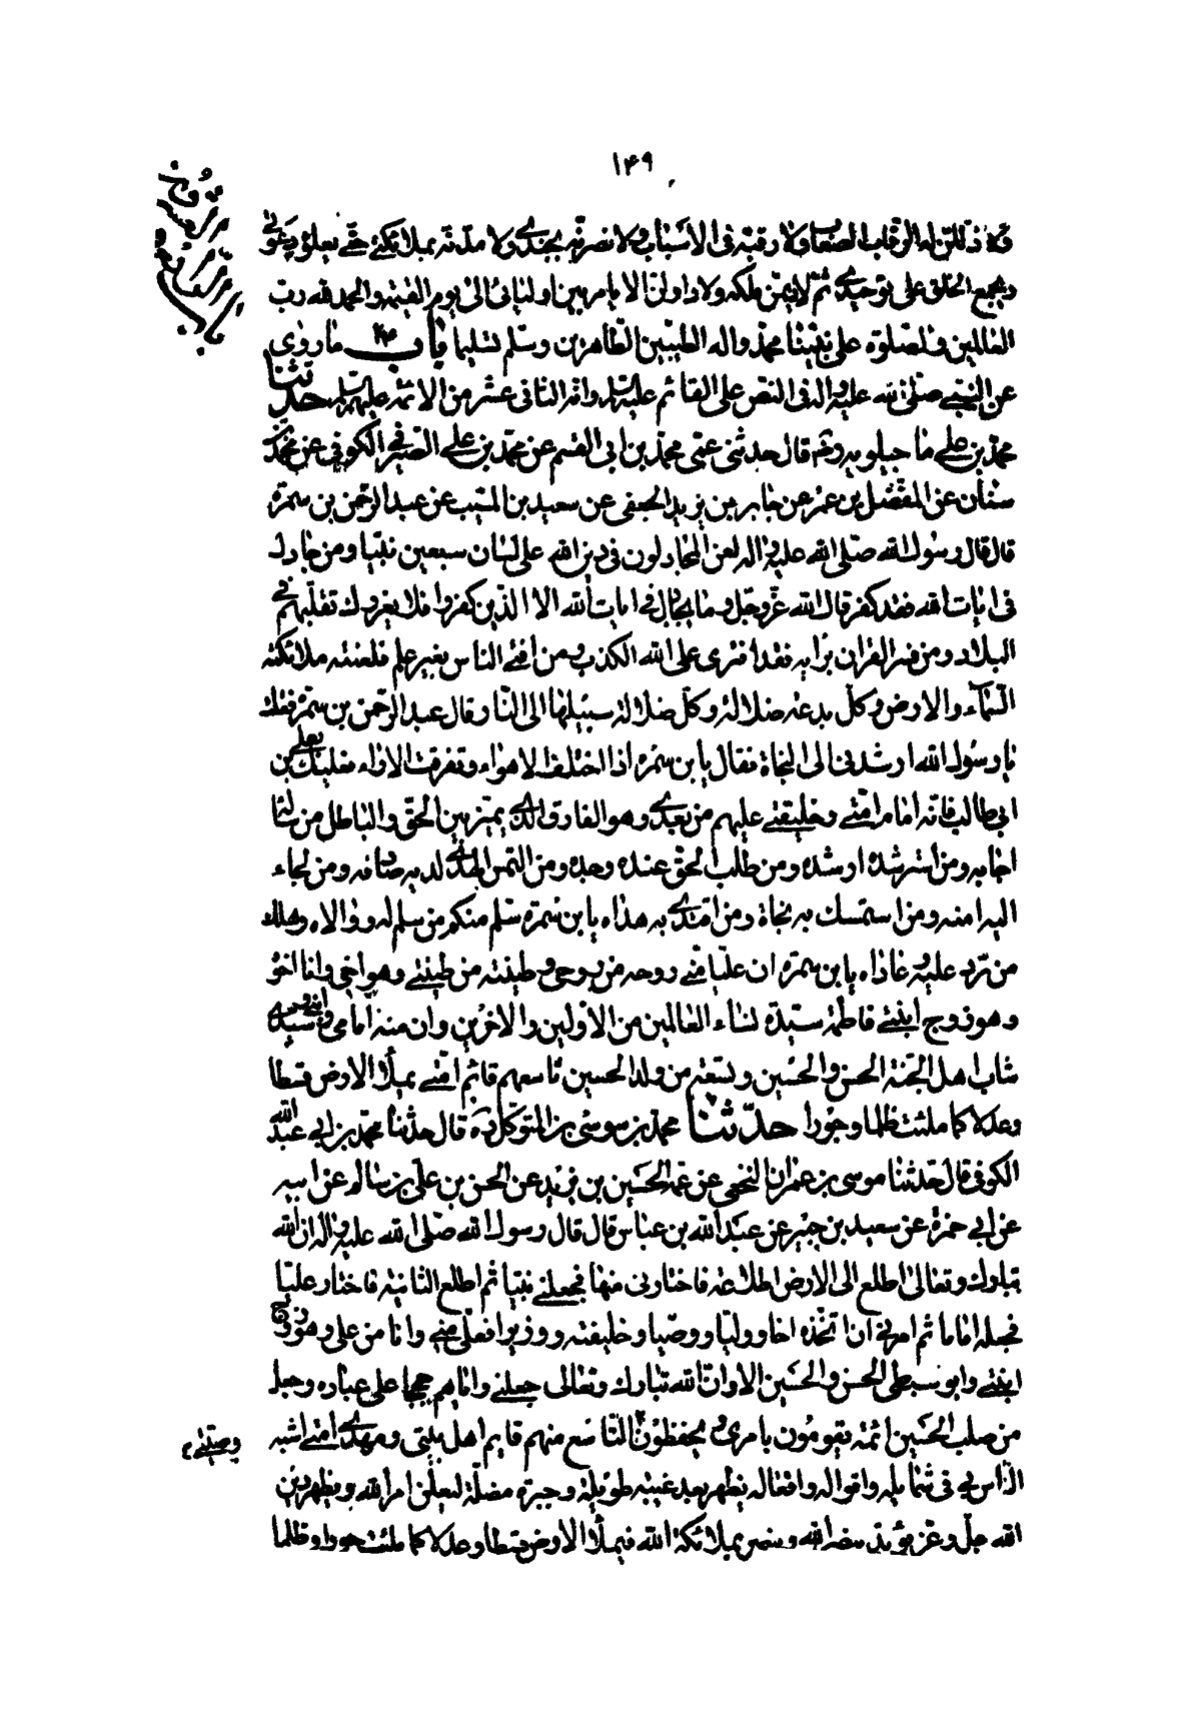 ١٤٩
ولاذللن له الرقاب الصعاب ولارقينه فى الاسباب ولانصرنه بجندى ولامدنه بملائكتى حتى يعلن دعوتى
ويجمع الخلق على توحيدى ثم لاديمن ملكه ولاداولن الايام بين اوليائى الى يوم القيمة والحمد لله رب
العالمين والصلوة على نبينا محمد واله الطيبين الطاهرين وسلم تسليما باب ٢٤ ما روى
عن النبى صلى الله عليه واله فى النص على القائم عليه السلام وانه الثانى عشر من الائمة عليهم السلام حدثنا
محمد بن على ما جيلويه ره قال حدثنى عمى محمد بن ابى القسم عن محمد بن على الصيرفى الكوفى عن محمد بن
سنان عن المفضل بن عمر عن جابر بن يزيد الجعفى عن سعيد بن المسيب عن عبد الرحمن بن سمرة
قال قال رسول الله صلى الله عليه واله لعن المجادلون فى دين الله على لسان سبعين نبيا ومن جادل
فى ايات الله فقد كفر قال الله عز وجل وما يجادل فى ايات الله الا الذين كفروا فلا يغررك تقلبهم فى
البلاد ومن فسر القران برايه فقد افترى على الله الكذب ومن افتى الناس بغير علم فلعنته ملائكة
السماء والارض وكل بدعة ضلالة وكل ضلالة سبيلها الى النار قال عبد الرحمن بن سمرة فقلت
يا رسول الله ارشدنى الى النجاة فقال يا بن سمرة اذا اختلف الاهواء وتفرقت الاراء فعليك بعلى بن
ابى طالب فانه امام امتى وخليفتى عليهم من بعدى وهو الفارق الذى يميز بين الحق والباطل من سئله
اجابه ومن استرشده ارشده ومن طلب الحق عنده وجده ومن التمس الهدى لديه صادفه ومن لجاء
اليه امنه ومن استمسك به نجاة ومن اقتدى به هداه يا بن سمرة سلم منكم من سلم له ووالاه وهلك
من رد عليه وعاداه يا بن سمرة ان عليا منى روحه من روحى وطينته من طينتى وهو اخى وانا اخوه
وهو زوج ابنتى فاطمة سيدة نساء العالمين من الاولين والاخرين وان منه امامى وابنى وسيدى
شباب اهل الجنة الحسن والحسين وتسعة من ولد الحسين تاسعهم قائم امتى يملأ الارض قسطا
وعدلا كما ملئت ظلما وجورا حدثنا محمد بن موسى بن المتوكل ره قال حدثنا محمد بن ابى عبد الله
الكوفى قال حدثنا موسى بن عمران النخعى عن عمه الحسين بن يزيد عن الحسن بن على بن سالم عن ابيه
عن ابى حمزة عن سعيد بن جبير عن عبد الله بن عباس قال قال رسول الله صلى الله عليه واله ان الله
تبارك وتعالى اطلع الى الارض اطلاعة فاختارنى منها فجعلنى نبيا ثم اطلع الثانية فاختار عليا
فجعله اماما ثم امرنى ان اتخذه اخا ووليا ووصيا وخليفته ووزيرا فعلى منى وانا من على وهو زوج
ابنتى وابو سبطى الحسن والحسين الا وان الله تبارك وتعالى جعلنى واياهم حججا على عباده وجعل
من صلب الحسين ائمة يقومون بامرى ويحفظون التاسع منهم قايم اهل بيتى ومهدى امتى اشبه
وصيتى م
الناس بى فى شمايله واقواله وافعاله يظهر بعد غيبة طويلة وحيرة مضلة ليعلن امر الله ويظهر دين
الله جل وعز يؤيد بنصر الله وينصر بملائكة الله فيملأ الارض قسطا وعدلا كما ملئت جورا وظلما